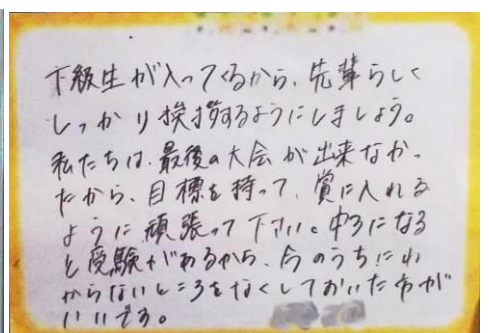 下級生が入ってくるから、先輩らしく
しっかり挨拶するようにしましょう。
私たちは、最後の大会が出来なかっ
たから、目標を持って、賞に入れる
ように頑張って下さい。中3になる
と受験があるから、今のうちにわ
からないところをなくしておいた方が
いいです。